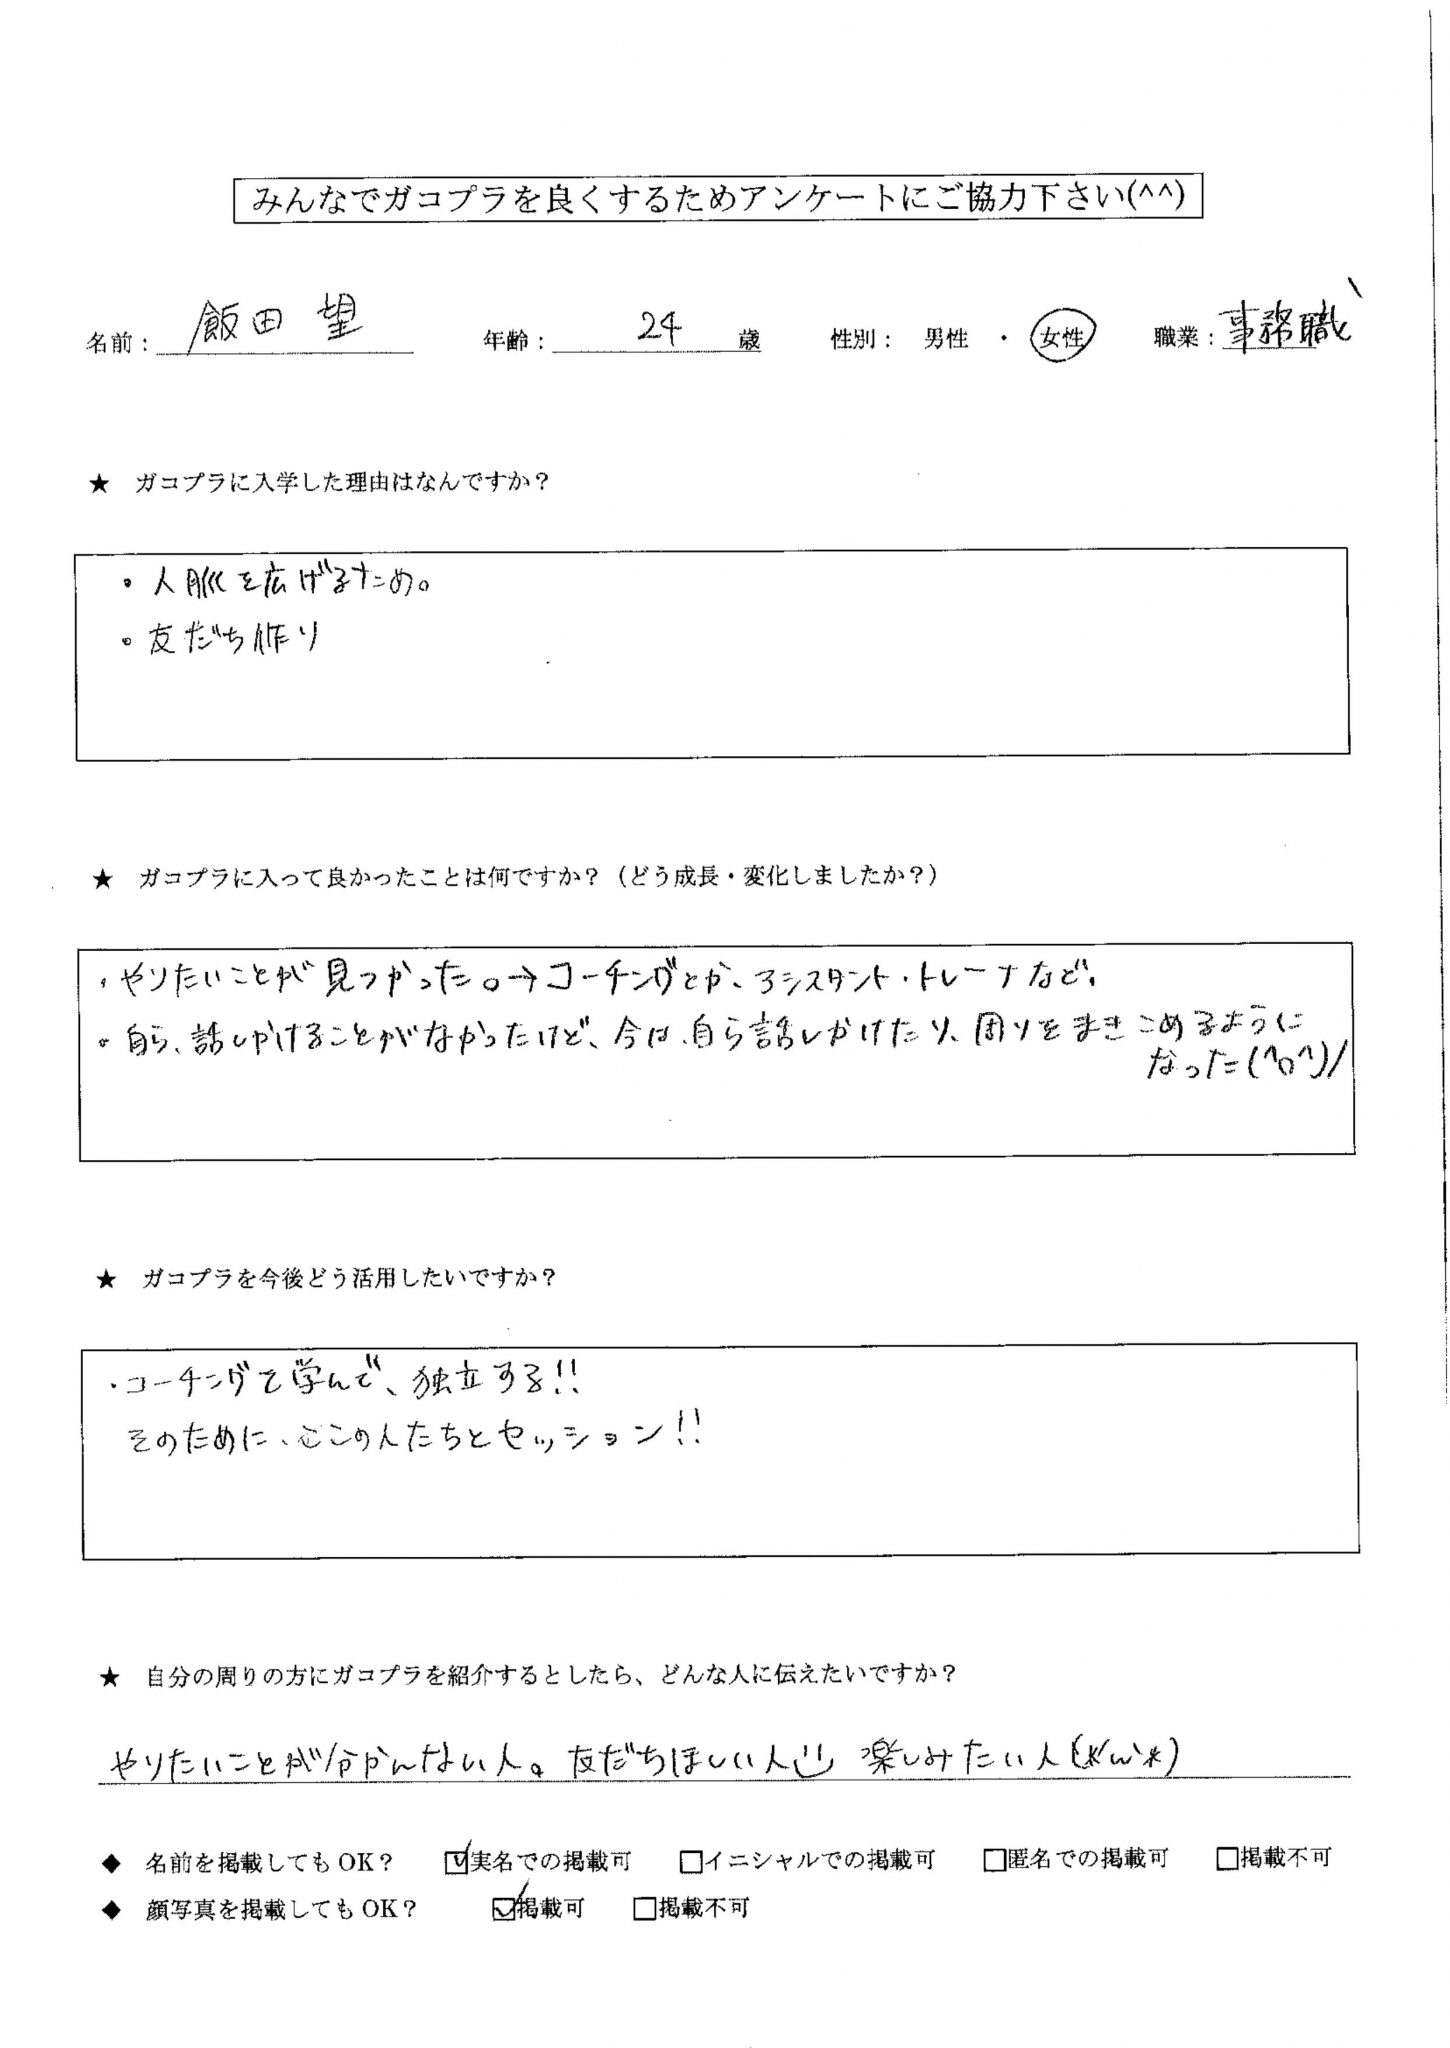 みんなでガコプラを良くするためアンケートにご協力下さい(^^)
名前: 飯田 望 年齢: 24 歳 性別: 男性 ・ 女性 職業: 事務職
★ ガコプラに入学した理由はなんですか?
・人脈を広げるため。
・友だち作り
★ ガコプラに入って良かったことは何ですか?(どう成長・変化しましたか?)
・やりたいことが見つかった。→コーチングとか、アシスタント・トレーナなど。
・自ら、話しかけることがなかったけど、今は、自ら話しかけたり、周りをまきこめるように
なった(^o^)/
★ ガコプラを今後どう活用したいですか?
・コーチングを学んで、独立する!!
そのために、の人たちとセッション!!
★ 自分の周りの方にガコプラを紹介するとしたら、どんな人に伝えたいですか?
やりたいことが分かんない人。友だちほしい人 楽しみたい人(*'ω'*)
◆ 名前を掲載してもOK? ☑実名での掲載可 □イニシャルでの掲載可 □匿名での掲載可 □掲載不可
◆ 顔写真を掲載してもOK? ☑掲載可 □掲載不可